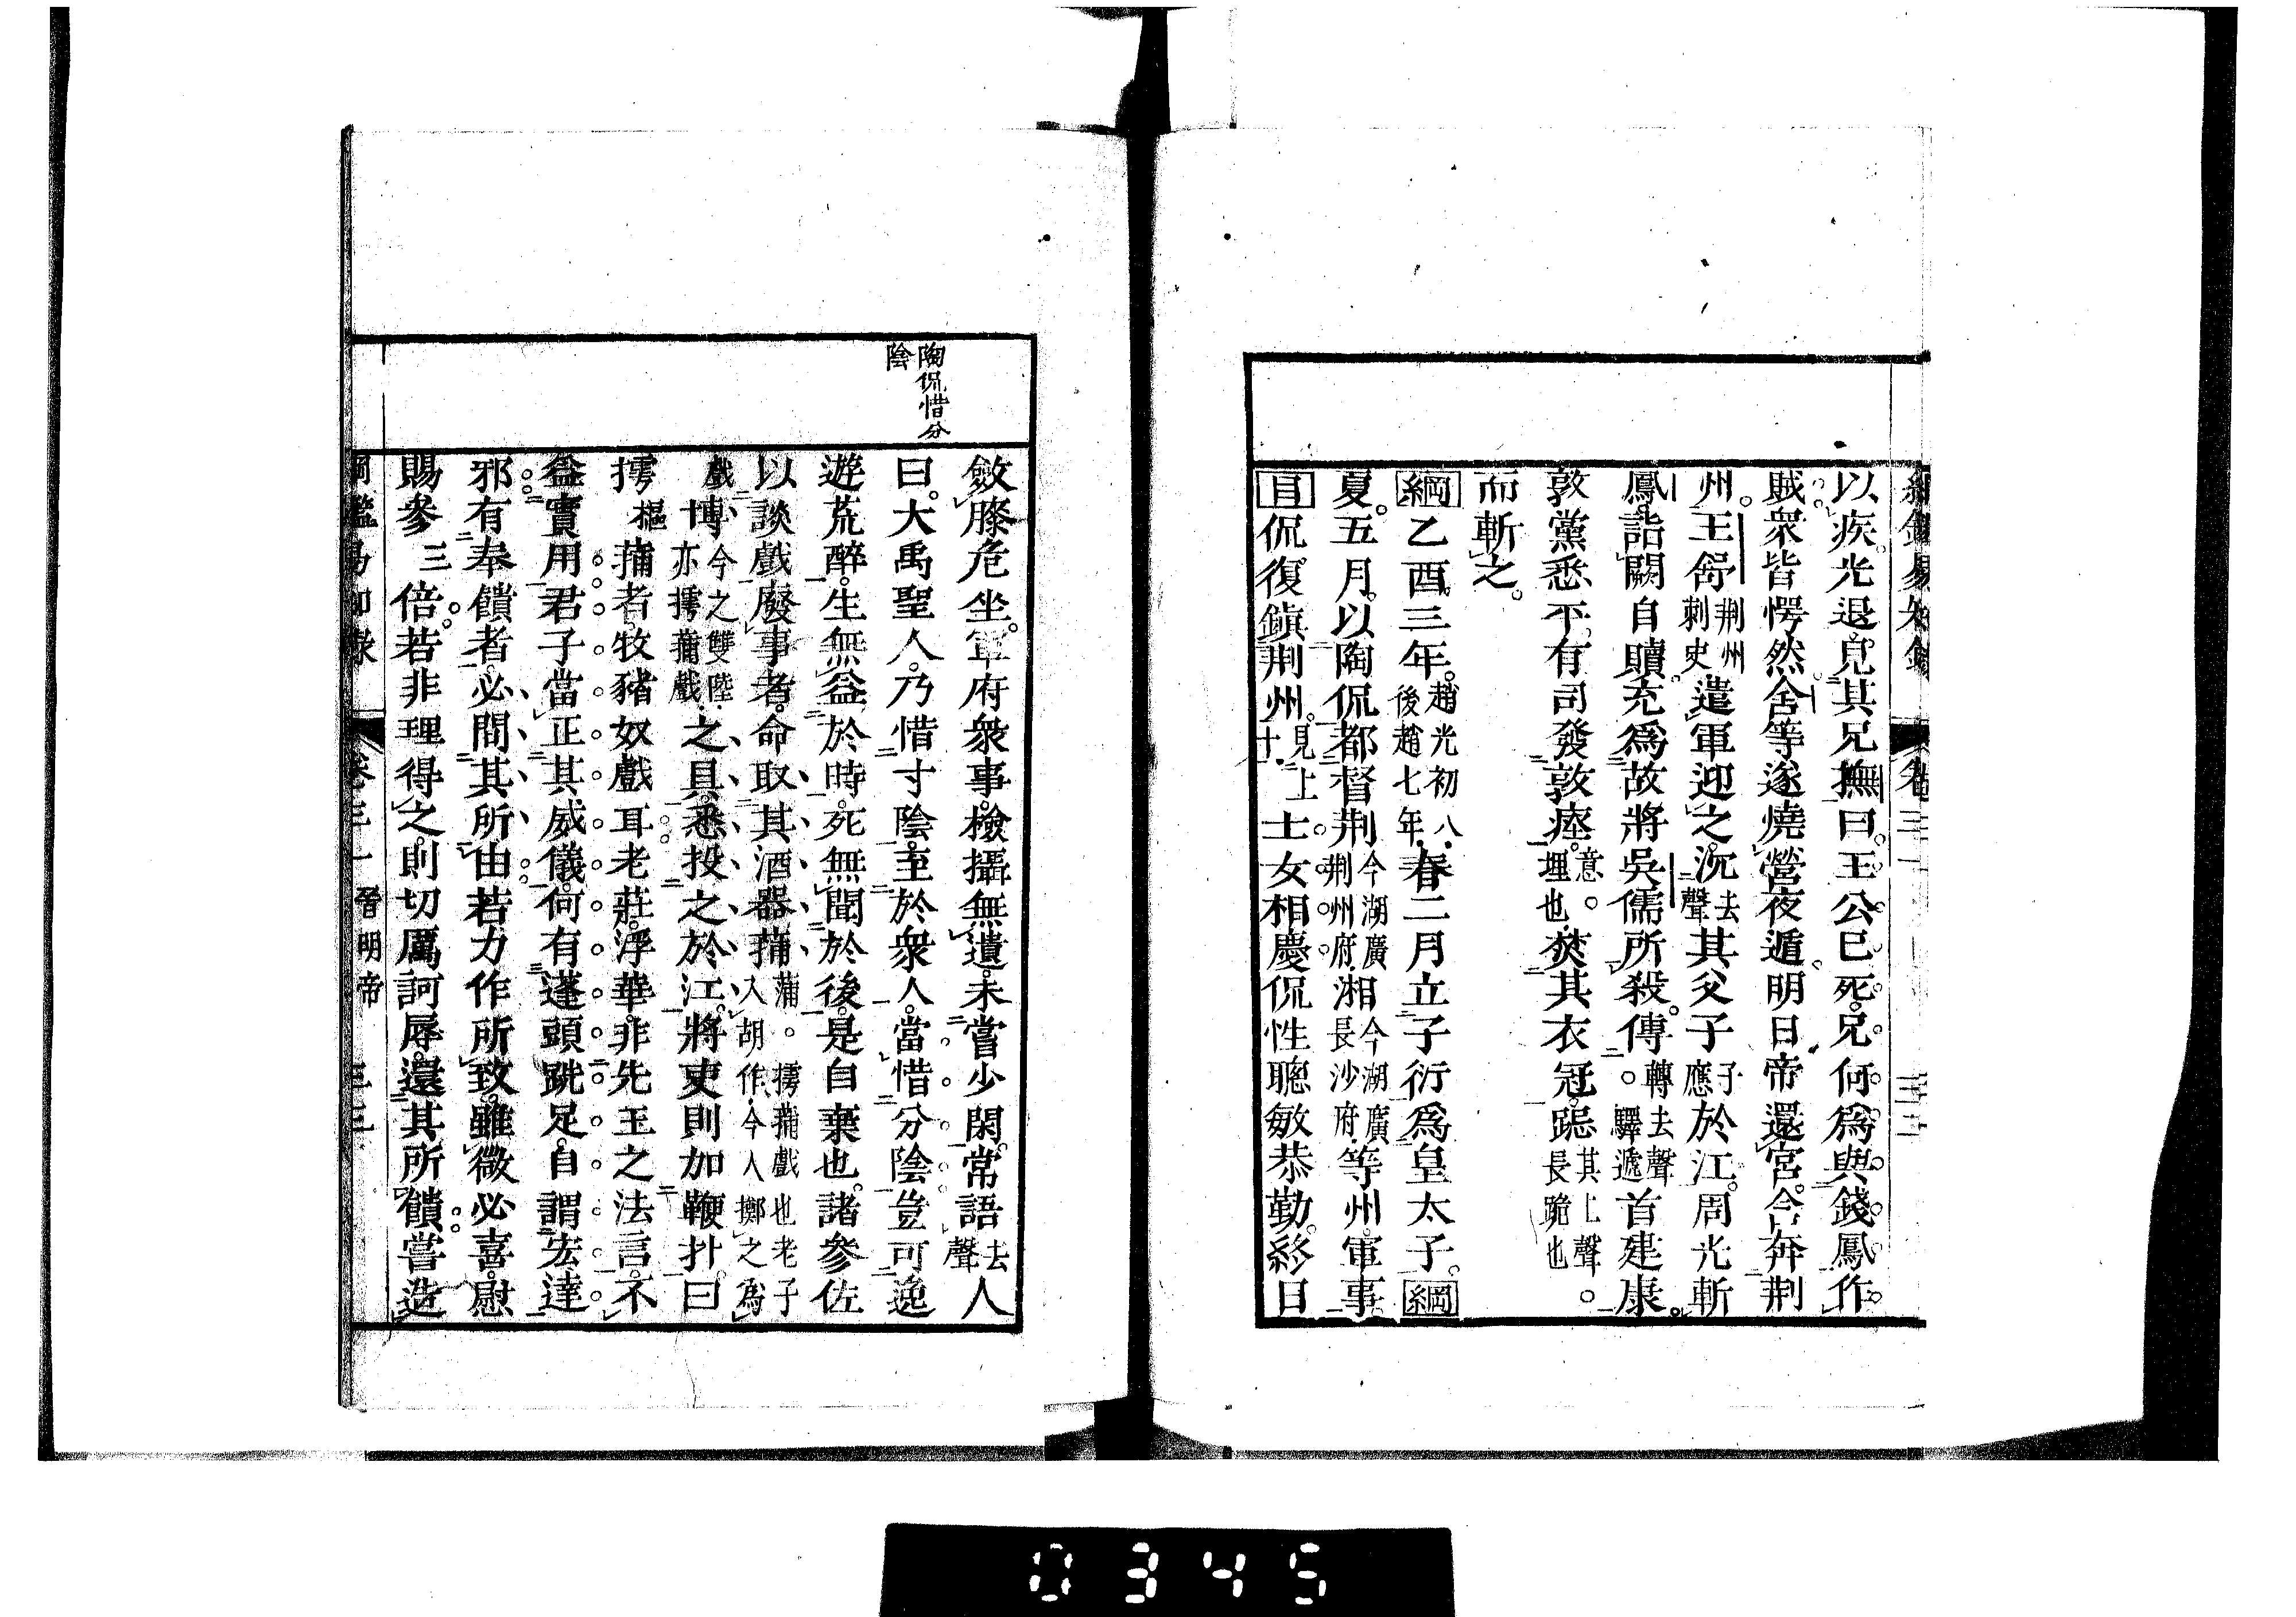 以疾光退見其兄撫曰王公已死兄何爲與錢鳳作
賊衆皆愕然含等遂燒營夜遁明日帝還宮含奔荆
州王舒荆州刺史遣軍迎之沉去聲其父子子應於江周光斬
鳳詣闕自贖充爲故將吳儒所殺傳轉去聲。驛遞首建康
敦黨悉平有司發敦瘞意。埋也焚其衣冠跽其上聲。長跪也
而斬之
綱乙酉三年趙光初八後趙七年春二月立子衍爲皇太子綱
夏五月以陶侃都督荆今湖廣荆州府湘今湖廣長沙府等州軍事
目侃復鎭荆州見上十士女相慶侃性聰敏恭勤終日
陶侃惜分
陰
斂膝危坐軍府衆事檢攝無遺未嘗少閑常語去聲人
曰大禹聖人乃惜寸陰至於衆人當惜分陰豈可逸
遊荒醉生無益於時死無聞於後是自棄也諸參佐
以談戲廢事者命取其酒器蒱蒲。摴蒱戲也老子入胡作今人擲之爲
戲博今之雙陸亦摴蒱戲之具悉投之於江將吏則加鞭扑曰
摴樞蒱者牧豬奴戲耳老莊浮華非先王之法言不
益實用君子當正其威儀何有蓬頭跣足自謂宏達
邪有奉饋者必問其所由若力作所致雖微必喜慰
賜參三倍若非理得之則切厲訶辱還其所饋嘗造
卷三一 晉明帝 三三
0345